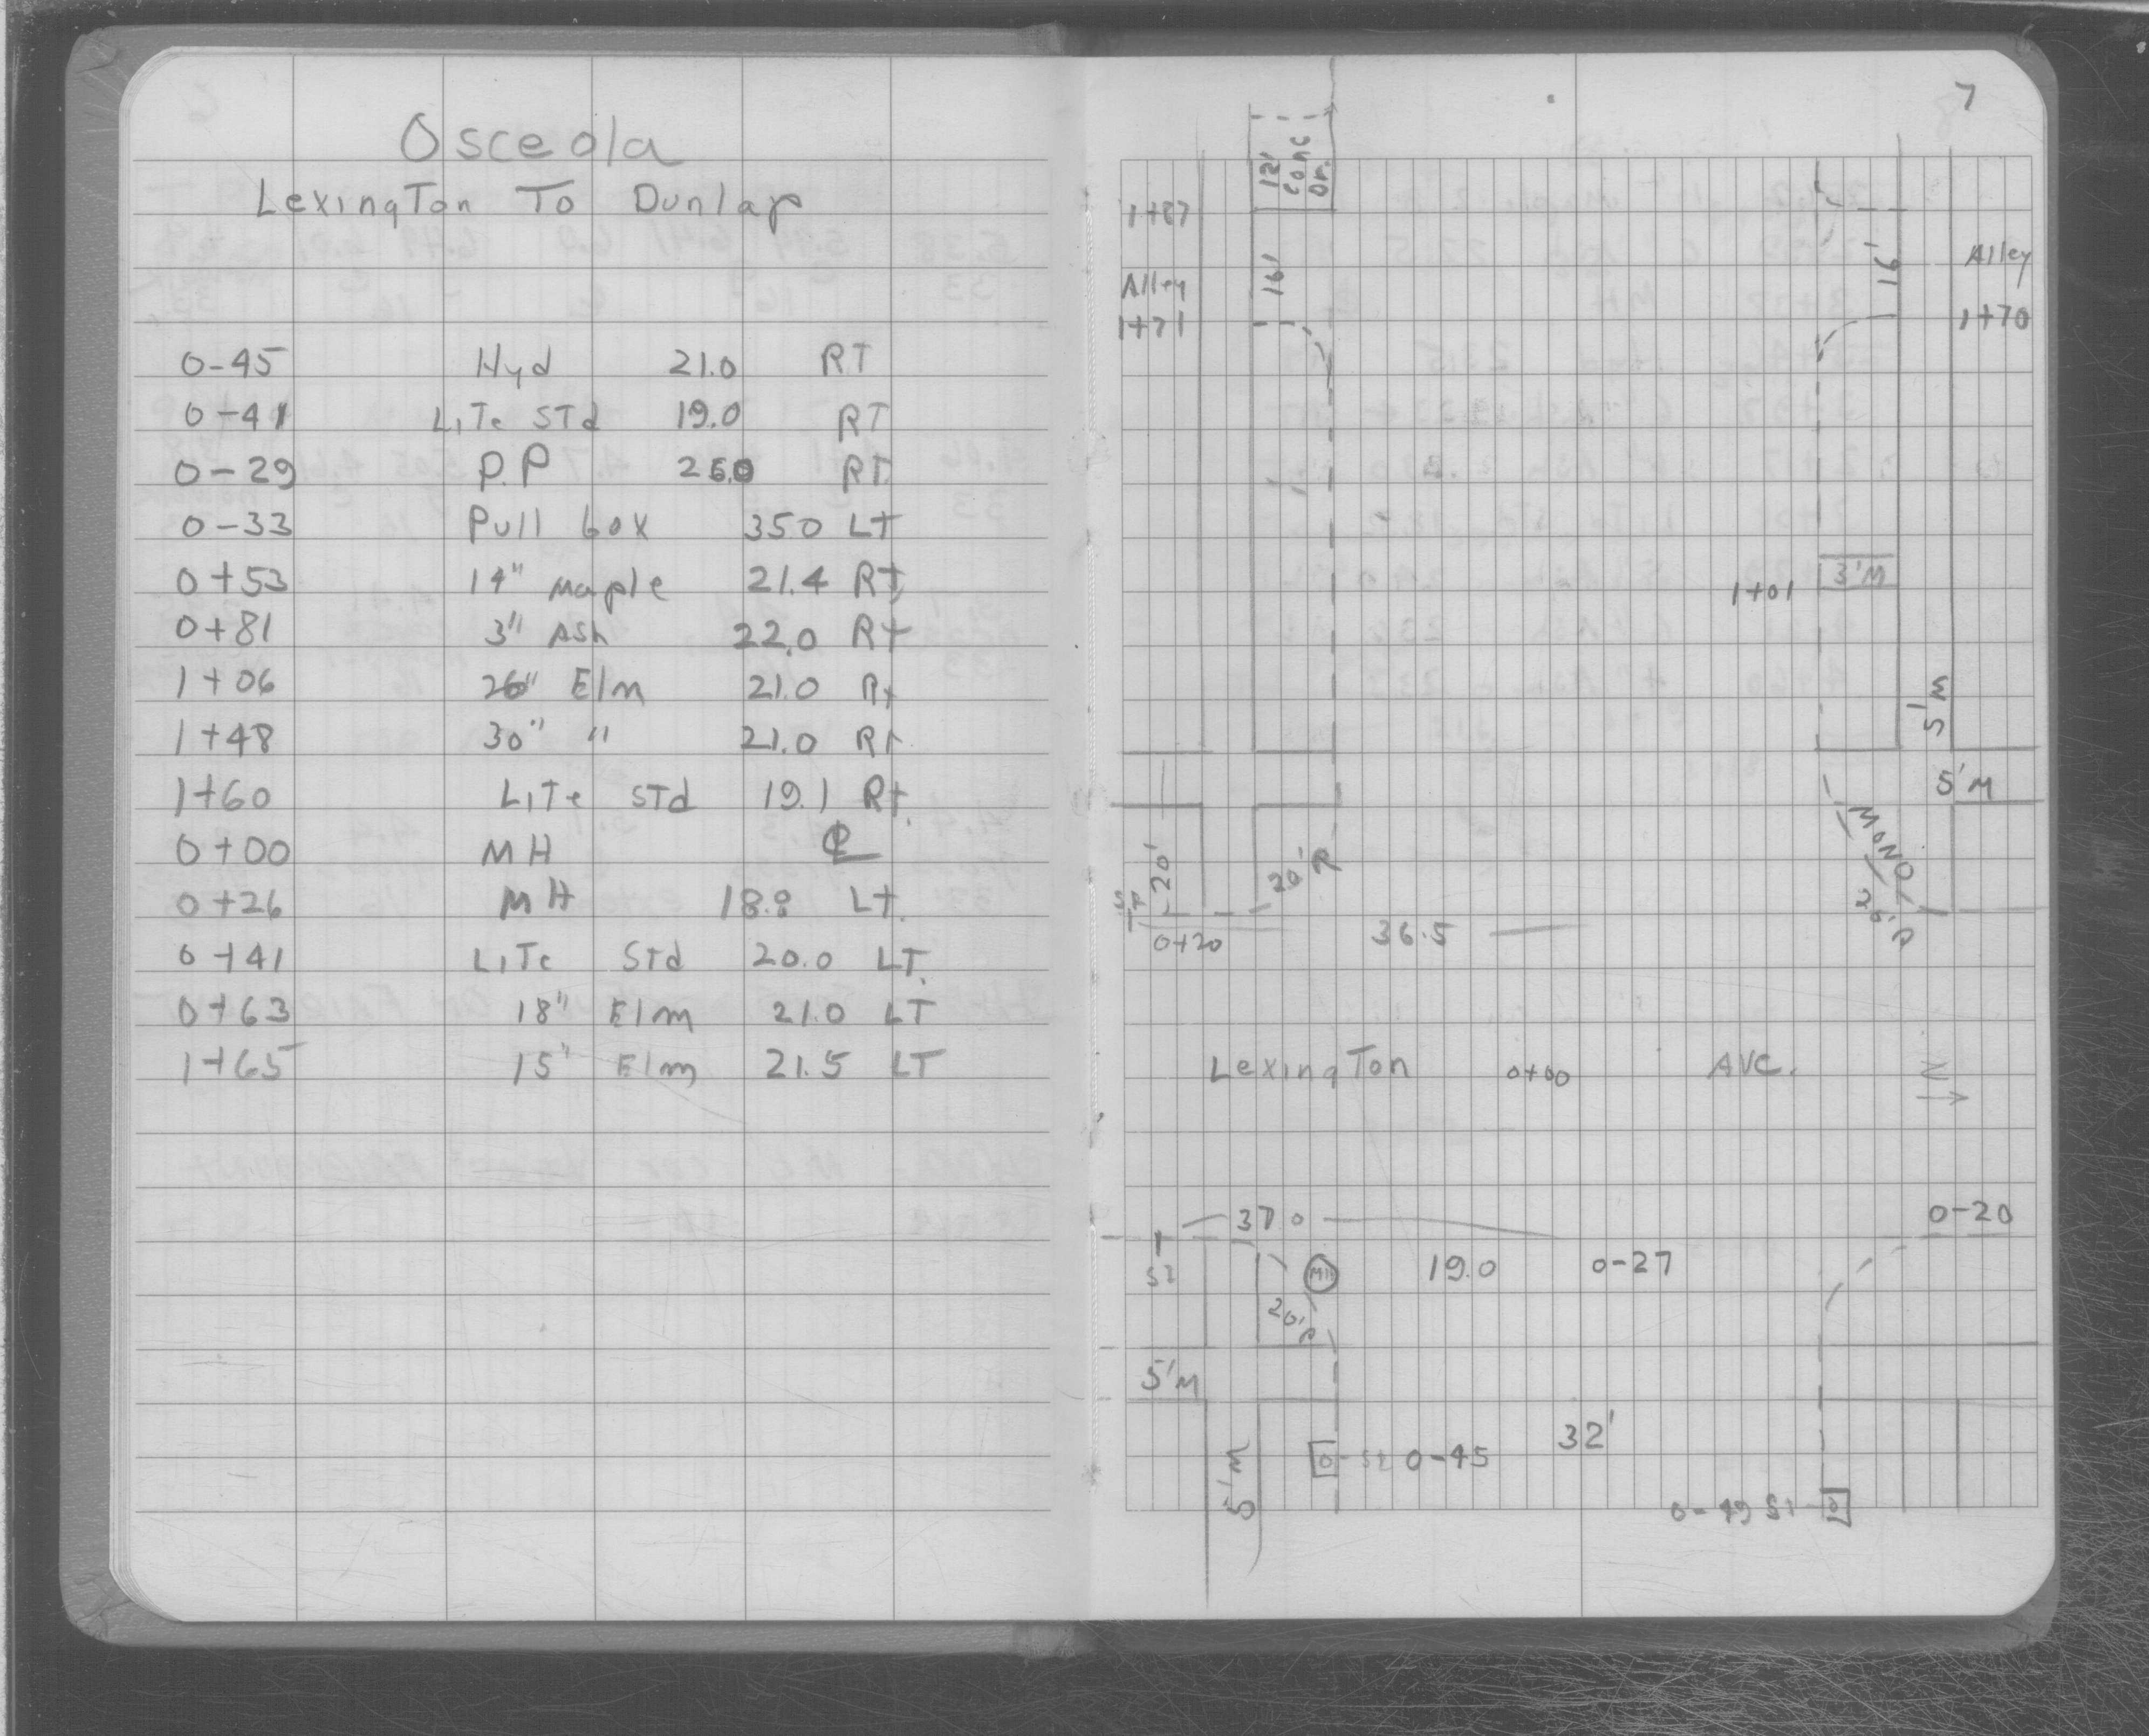 Osceola
Lexington To Dunlap
0-45 Hyd 21.0 RT
0-41 LiTe STd 19.0 RT
0-29 P.P 26.0 RT
0-33 Pull box 35.0 LT
0+53 14" Maple 21.4 RT
0+81 3" Ash 22.0 RT
1+06 26" Elm 21.0 Rt
1+48 30" " 21.0 Rt
1+60 LiTe STd 19.1 Rt.
0+00 MH ℄
0+26 MH 18.8 Lt.
0+41 LiTe Std 20.0 LT.
0+63 18" Elm 21.0 LT
1+65 15" Elm 21.5 LT
7
12' Conc Dr.
1+87
16'
16'
Alley
Alley
1+71
1+70
3'M
1+01
5'M
5'M
Mono
20'
20' R
20' R
0+20
36.5
LexingTon 0+00 AVC.
N
37.0
0-20
MH
19.0
0-27
20' R
5'M
32'
5'M
0-45
0-49